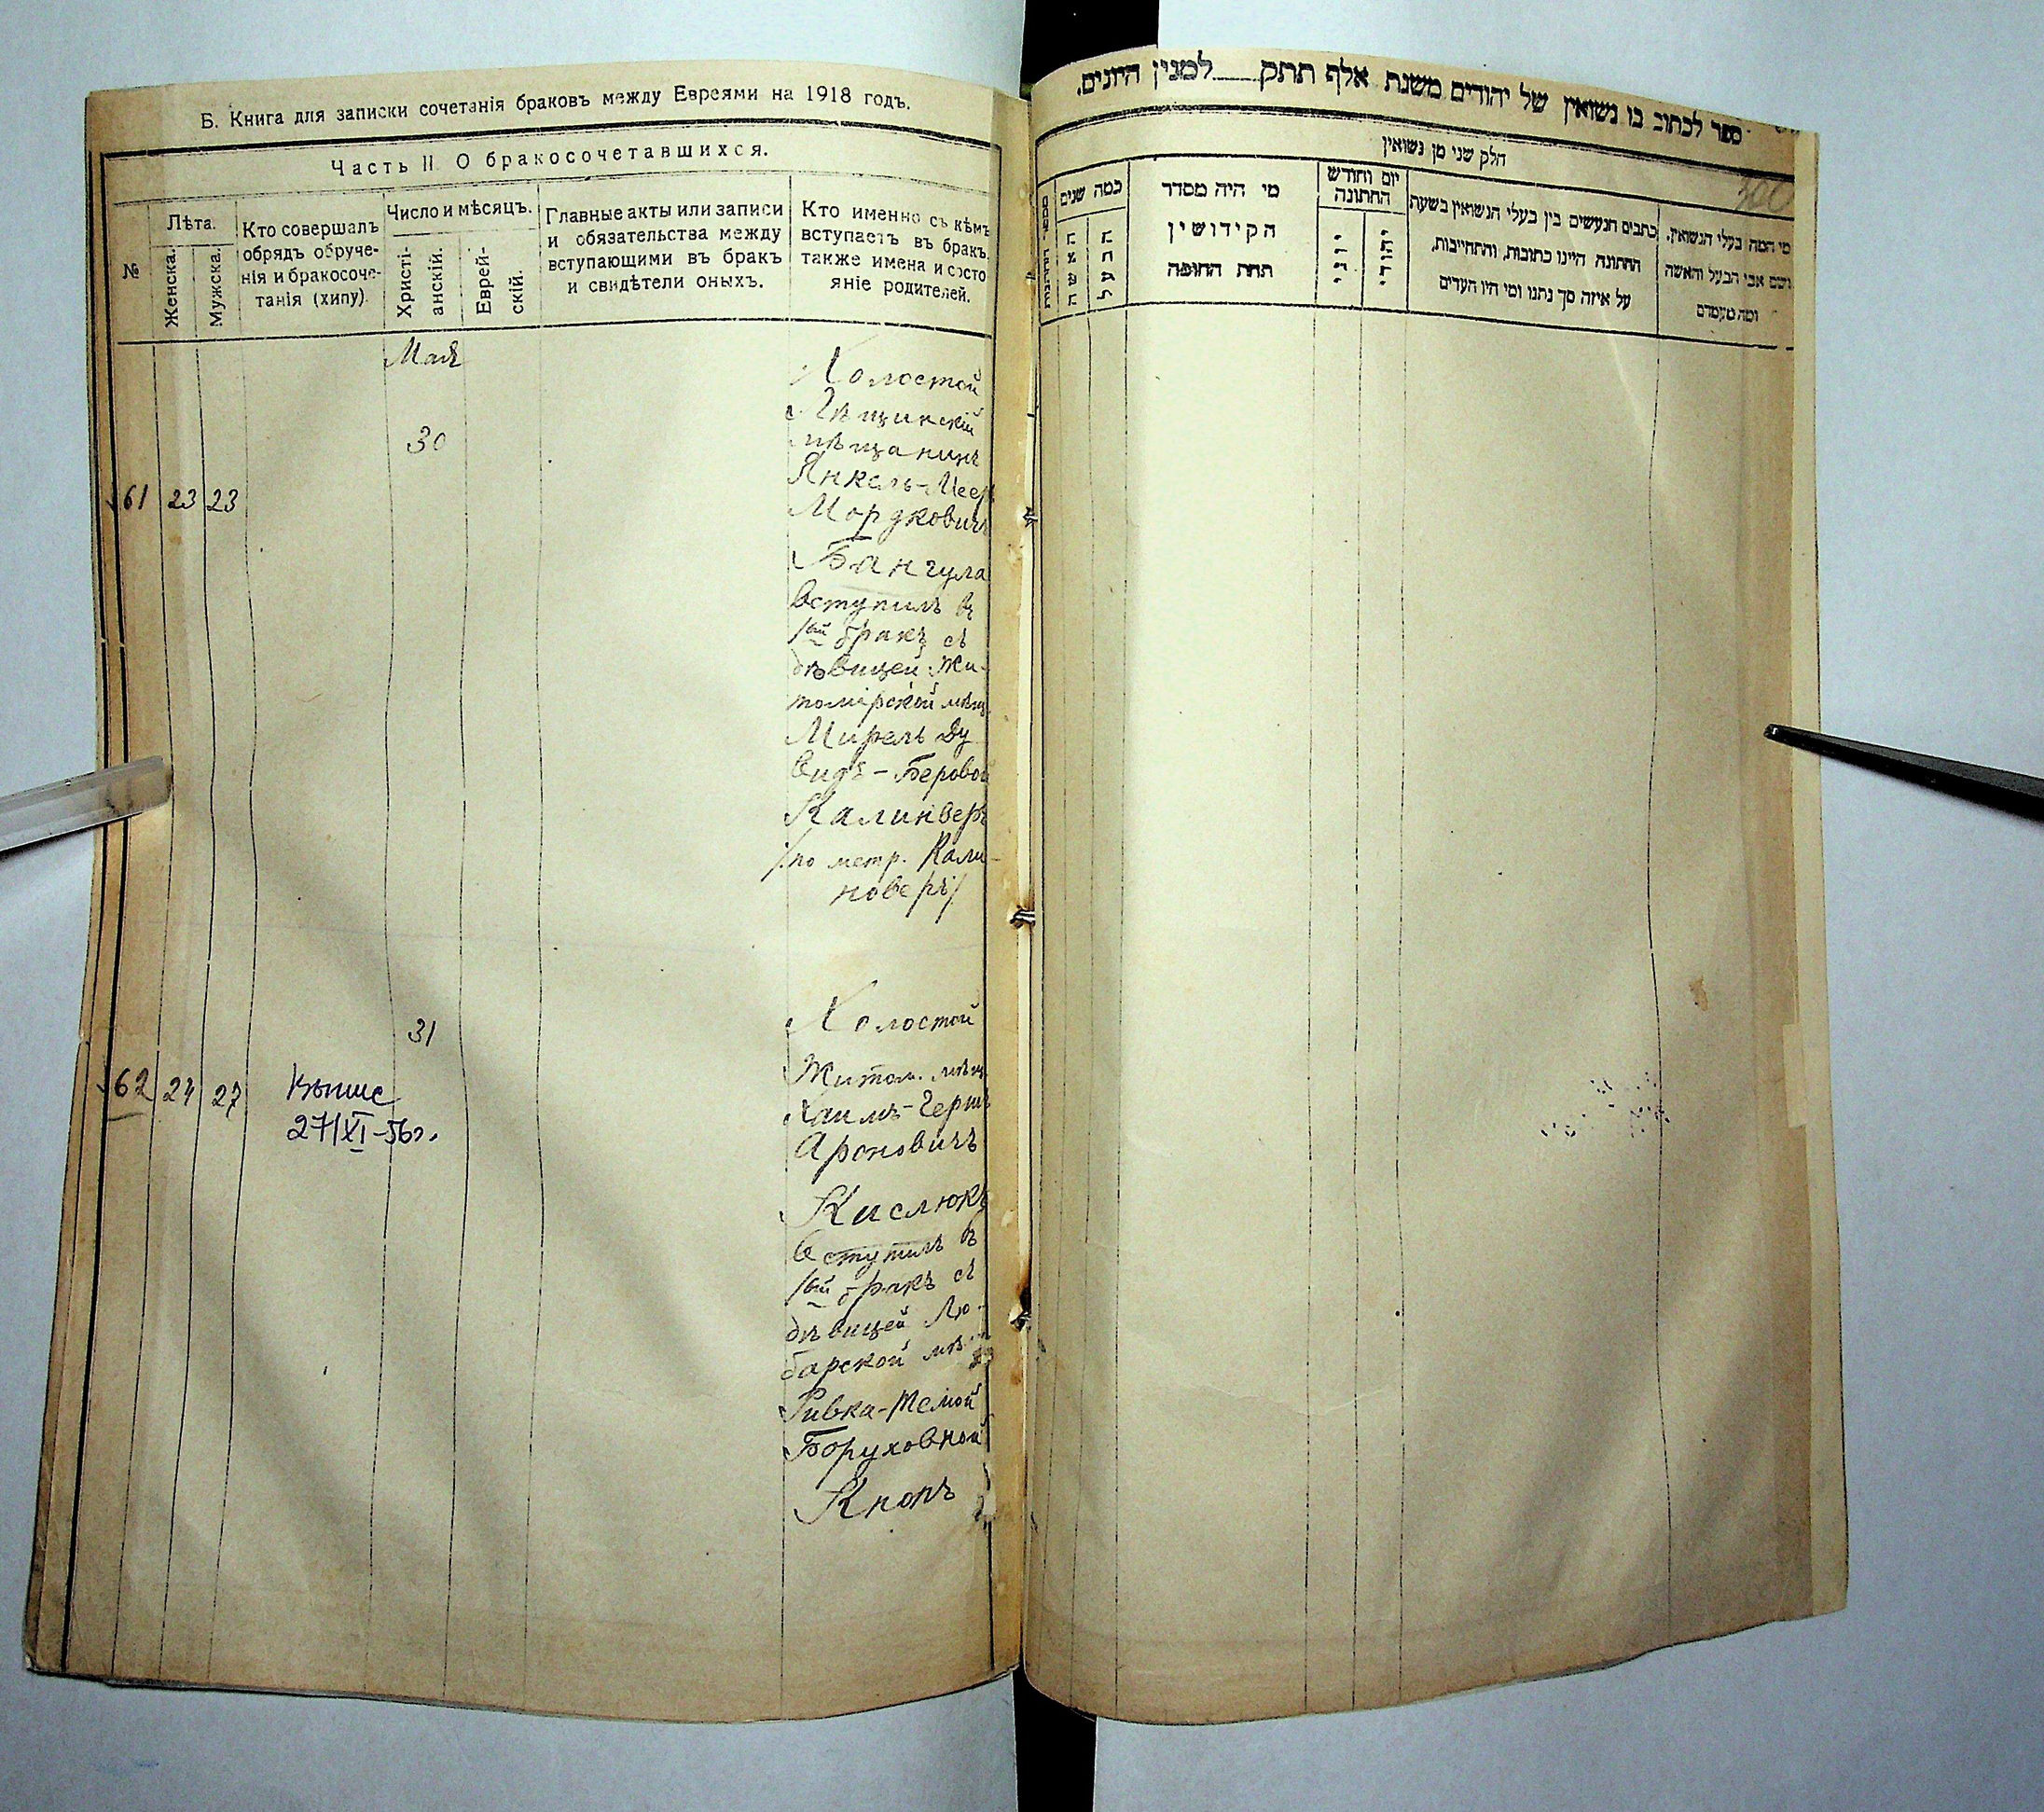 Б. Книга для записки сочетанія браковъ между Евреями на 1918 годъ.
Часть II. О бракосочетавшихся.
№
Лѣта.
Женска.
Мужска.
Кто совершалъ
обрядъ обруче-
нія и бракосоче-
танія (хипу).
Число и мѣсяцъ.
Христі-
анскій.
Еврей-
скій.
Главные акты или записи
и обязательства между
вступающими въ бракъ
и свидѣтели оныхъ.
Кто именно съ кѣмъ
вступаетъ въ бракъ,
также имена и состо
яніе родителей.
Мая
30
61 23 23
Холостой
мѣщанинъ
Янкель-Меер
Мордковичъ
Бангула
вступилъ въ
1ый бракъ съ
дѣвицей Жи-
томірской мѣщ.
Мирель Ду
видъ-Беровой
Калинверъ
/по метр. Кали-
новеръ/
31
62 24 27
Выпис
27/XI-56г.
Холостой
Житом. мѣщ
Хаимъ-Герш
Ароновичъ
Кислюкъ
вступилъ въ
1ый бракъ съ
дѣвицей Лю-
барской мѣ
Ривка-Темой
Боруховной
Кнопъ
ספר לכתוב בו נשואין של יהודים משנת אלף תתק למנין היונים.
חלק שני מן נשואין
כמה שנים
האשה
הבעל
מי היה מסדר
הקידושין
תחת החופה
יום וחודש
החתונה
יוני
יהודי
כתבים הנעשים בין בעלי הנשואין בשעת
החתונה היינו כתובות, והתחייבות,
על איזה סך נתנו ומי היו העדים
מי המה בעלי הנשואין,
ושם אבי הבעל והאשה
ומה מעמדם
300